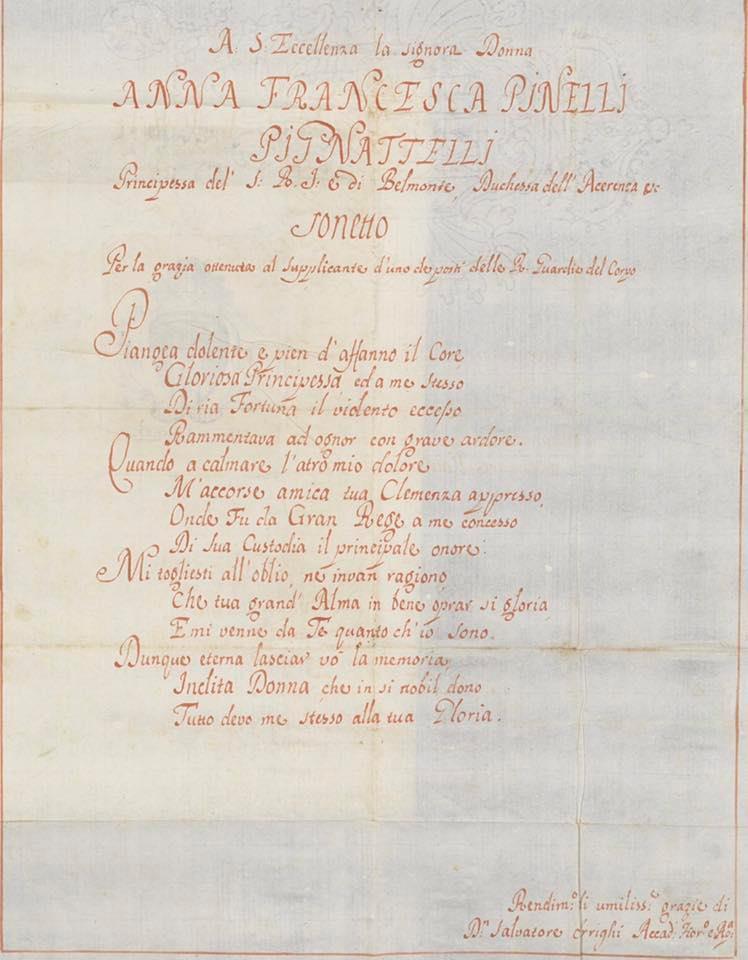 A: S: Eccellenza la signora Donna
ANNA FRANCESCA PINELLI
PIGNATTELLI
Principessa del' S: R: I: e di Belmonte, Duchessa dell' Acerenza &c
SONETTO
Per la grazia ottenuta al supplicante d'uno de posti delle R. Guardie del Corpo
Piangea dolente e pien d'affanno il Core
Gloriosa Principessa ed a me stesso
Di ria Fortuna il violento eccesso
Rammentava ad ognor con grave ardore.
Quando a calmare l'atro mio dolore
M'accorse amica tua Clemenza appresso,
Onde Fu da Gran Rege a me concesso
Di sua Custodia il principale onore:
Mi togliesti all'oblio, ne invan ragiono
Che tua grand' Alma in bene oprar si gloria
E mi venne da Te quanto ch'io sono.
Dunque eterna lasciar vo' la memoria,
Inclita Donna che in si nobil dono
Tutto devo me stesso alla tua Gloria.
Rendim.o di umiliss.e grazie di
D.n Salvatore Arrighi Accad. Fior.o e